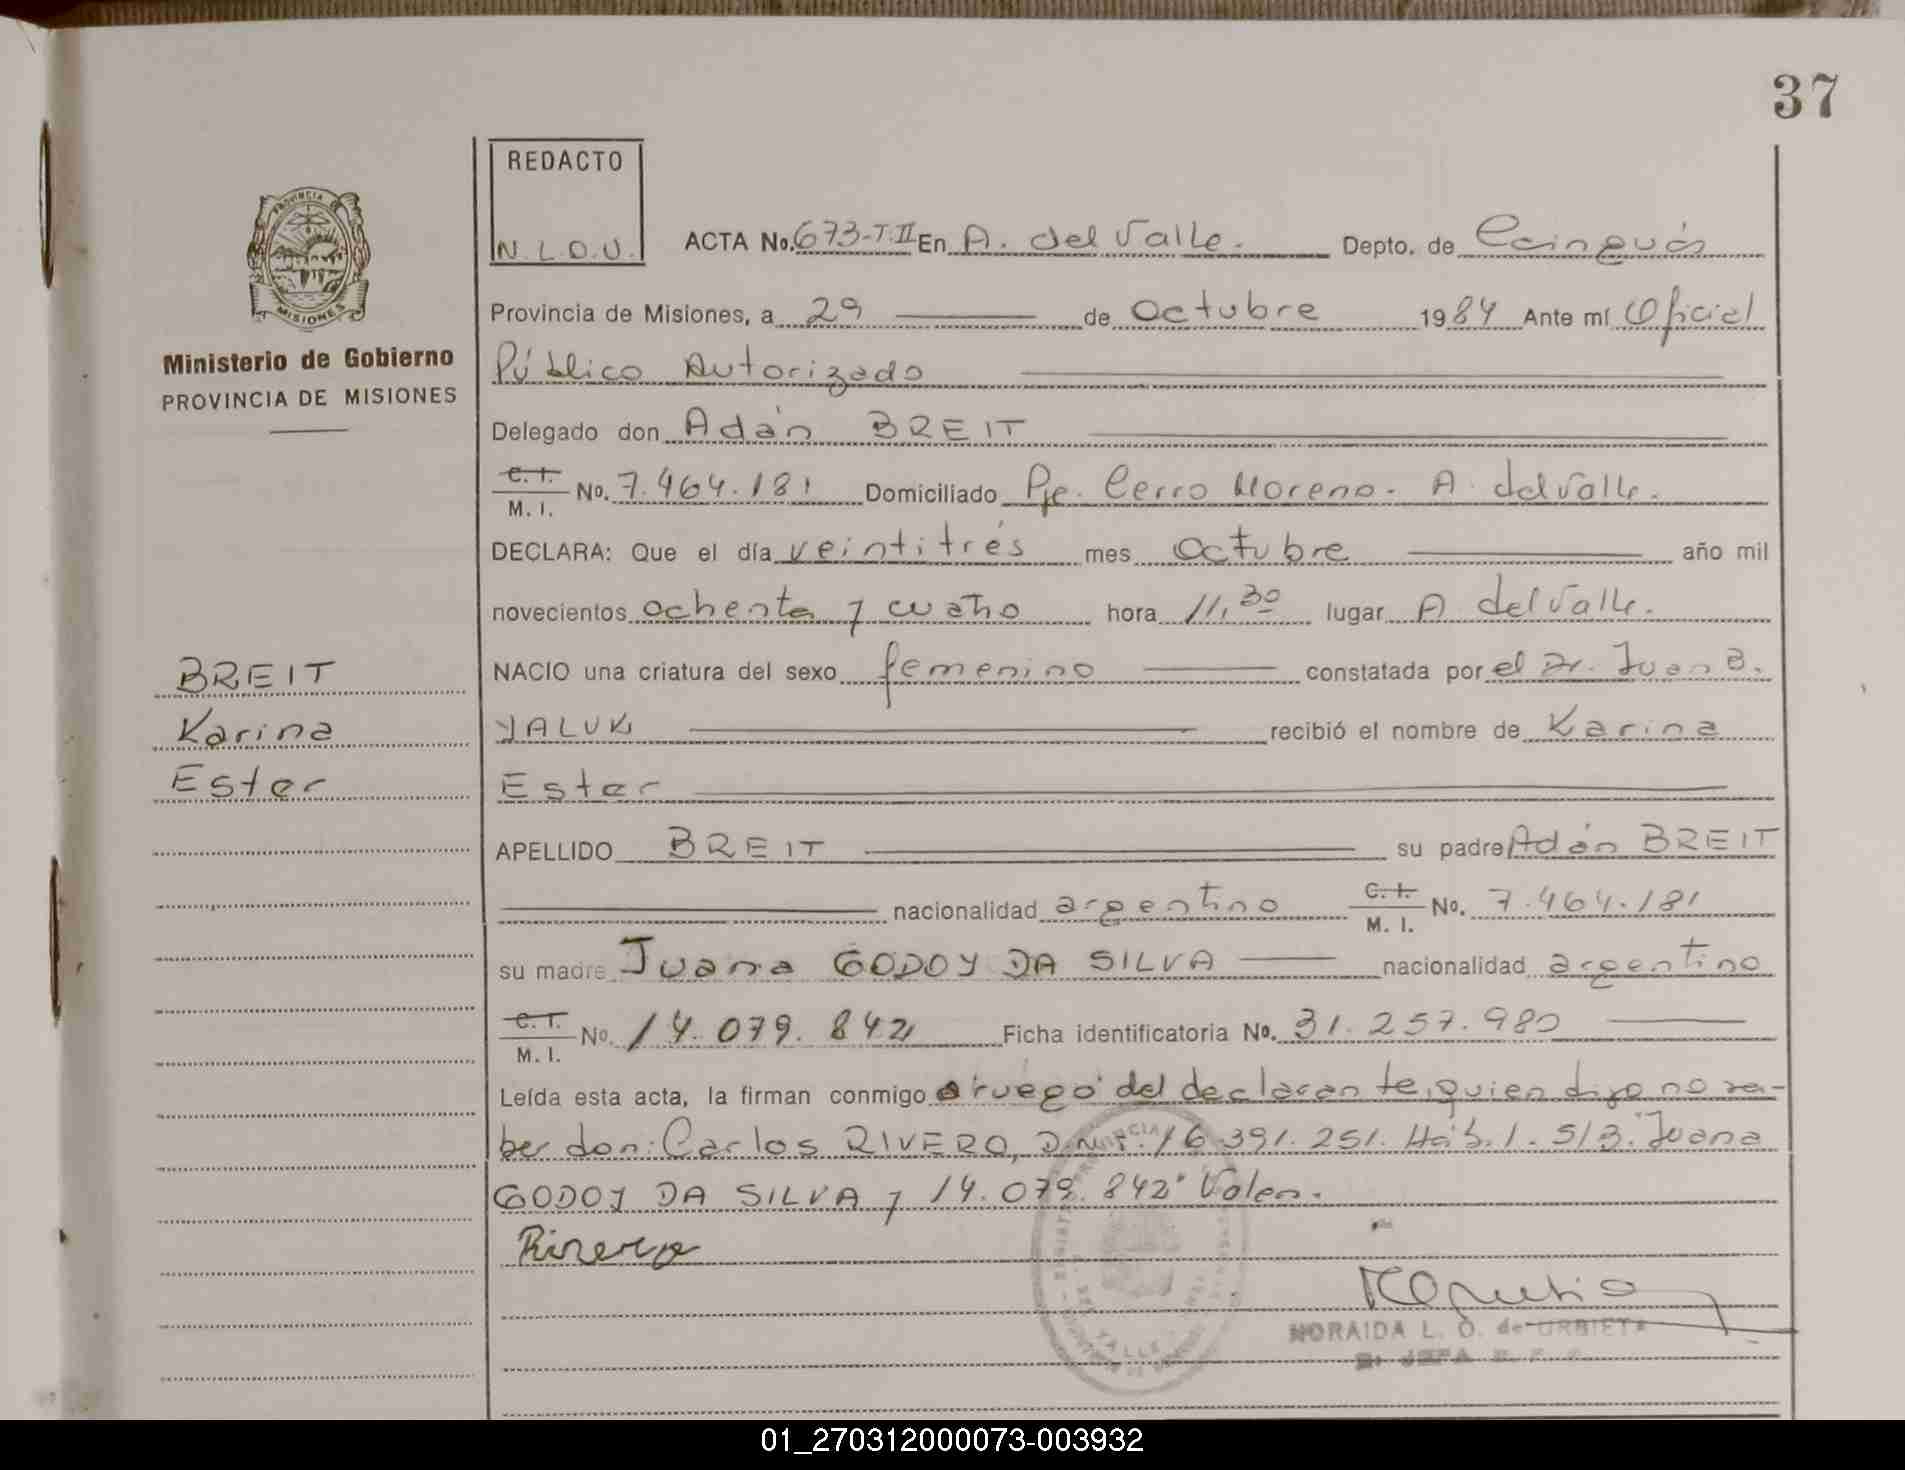 37
REDACTO
N.L.O.U.
ACTA No. 673-T.II En A. del Valle. Depto. de Cainguás
PROVINCIA DE
MISIONES
Provincia de Misiones, a 29 de Octubre 1984 Ante mí Oficial
Ministerio de Gobierno
PROVINCIA DE MISIONES
Público Autorizado
Delegado don Adán BREIT
C. I.
M. I.
No. 7.464.181 Domiciliado Pje. Cerro Moreno. A. del Valle.
DECLARA: Que el día veintitrés mes octubre año mil
novecientos ochenta y cuatro hora 11,30 lugar A. del Valle.
BREIT
NACIO una criatura del sexo femenino constatada por el Dr. Juan B.
Karina
YALUK recibió el nombre de Karina
Ester
Ester
APELLIDO BREIT su padre Adán BREIT
nacionalidad argentino C. I. M. I. No. 7.464.181
su madre Juana GODOY DA SILVA nacionalidad argentino
C. I.
M. I.
No. 14.079.842 Ficha identificatoria No. 31.257.980
Leída esta acta, la firman conmigo a ruego del declarante, quien dijo no sa-
ber don: Carlos RIVERO, D.N.I. 16.391.251. Háb. 1. S/B. Juana
GODOY DA SILVA y 14.079.842" Valen.
PROVINCIA
DEL VALLE
NORAIDA L. O. de URBIETA
JEFA
01_270312000073-003932